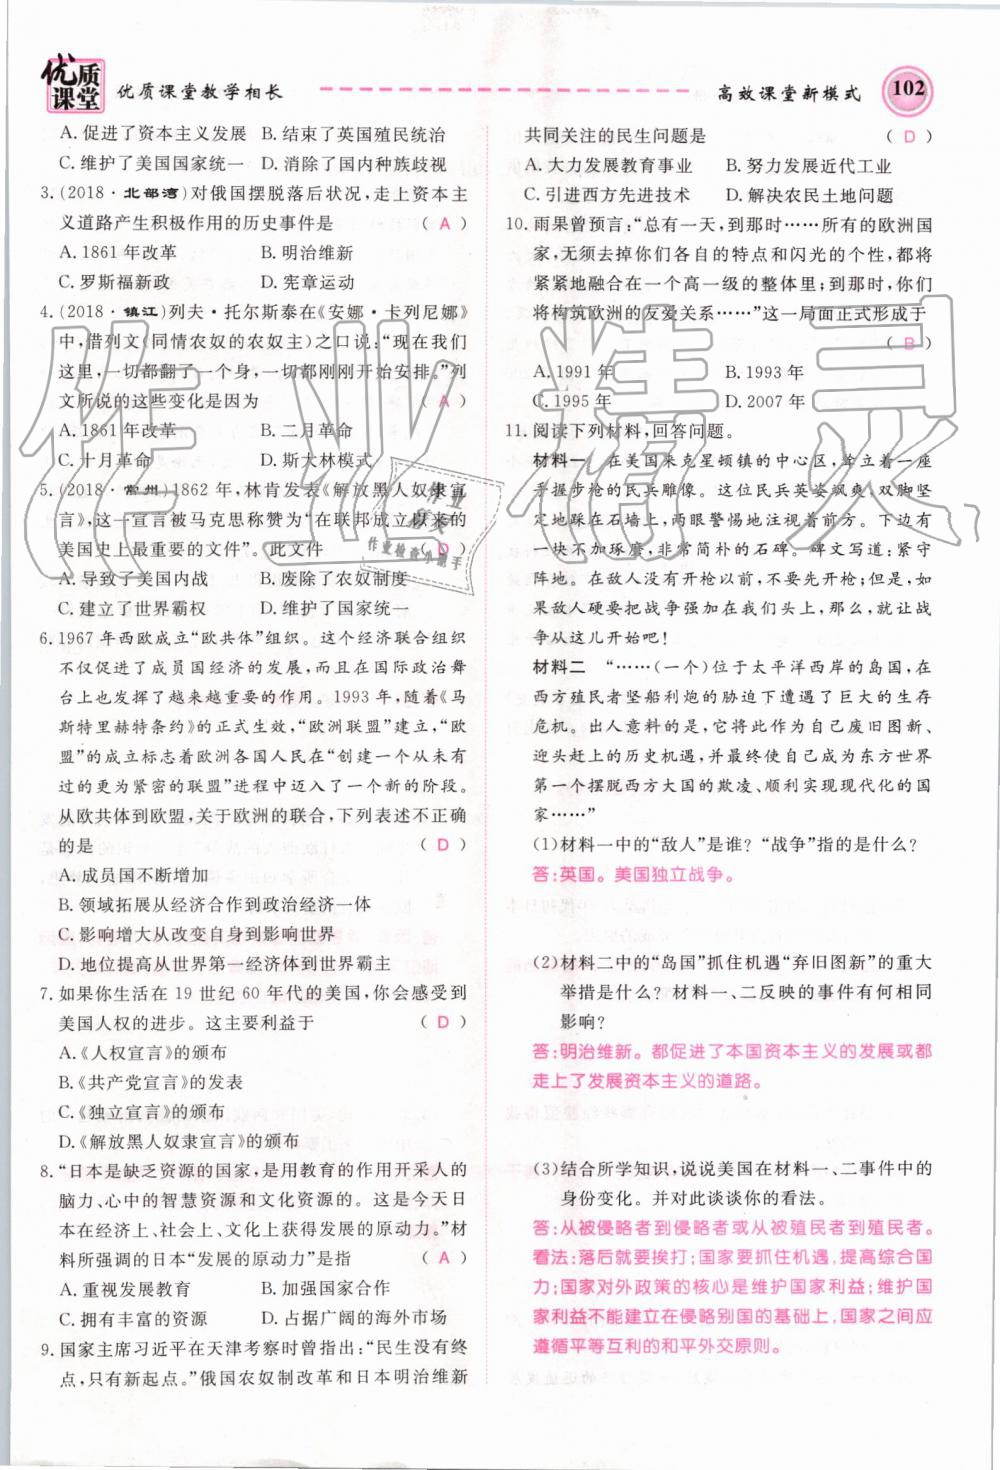 优质课堂
优质课堂教学相长
高效课堂新模式
102
A. 促进了资本主义发展 B. 结束了英国殖民统治
C. 维护了美国国家统一 D. 消除了国内种族歧视
3. (2018·北部湾)对俄国摆脱落后状况,走上资本主
义道路产生积极作用的历史事件是 ( A )
A. 1861年改革 B. 明治维新
C. 罗斯福新政 D. 宪章运动
4. (2018·镇江)列夫·托尔斯泰在《安娜·卡列尼娜》
中,借列文(同情农奴的农奴主)之口说:“现在我们
这里,一切都翻了一个身,一切都刚刚开始安排。”列
文所说的这些变化是因为 ( A )
A. 1861年改革 B. 二月革命
C. 十月革命 D. 斯大林模式
5. (2018·常州)1862年,林肯发表《解放黑人奴隶宣
言》,这一宣言被马克思称赞为“在联邦成立以来的
美国史上最重要的文件”。此文件 ( D )
A. 导致了美国内战 B. 废除了农奴制度
C. 建立了世界霸权 D. 维护了国家统一
6. 1967年西欧成立“欧共体”组织。这个经济联合组织
不仅促进了成员国经济的发展,而且在国际政治舞
台上发挥了越来越重要的作用。1993年,随着《马
斯特里赫特条约》的正式生效,“欧洲联盟”建立,“欧
盟”的成立标志着欧洲各国人民在“创建一个欧洲人
民的更为紧密的联盟”进程中迈入了一个新的阶段。
从欧共体到欧盟,关于欧洲的联合,下列表述不正确
的是 ( D )
A. 成员国不断增加
B. 领域拓展从经济合作到政治经济一体
C. 影响增大从改变自身到影响世界
D. 地位提高从世界第一经济体到世界霸主
7. 如果你生活在19世纪60年代的美国,你会感受到
美国人权的进步。这主要利益于 ( D )
A.《人权宣言》的颁布
B.《共产党宣言》的发表
C.《独立宣言》的颁布
D.《解放黑人奴隶宣言》的颁布
8. “日本是缺乏资源的国家,是用教育的作用开采人的
脑力、心中的智慧资源和文化资源的。这是今天日
本在经济上、社会上、文化上获得发展的原动力。”材
料所强调的日本“发展的原动力”是指 ( A )
A. 重视发展教育 B. 加强国家合作
C. 拥有丰富的资源 D. 占据广阔的海外市场
9. 国家主席习近平在天津考察时曾指出:“民生没有终
点,只有新起点。”俄国农奴制改革和日本明治维新
共同关注的民生问题是 ( D )
A. 大力发展教育事业 B. 努力发展近代工业
C. 引进西方先进技术 D. 解决农民土地问题
10. 雨果曾预言:“总有一天,到那时……所有的欧洲国
家,无须去掉你们各自的特点和闪光的个性,都将
紧紧地融合在一个高一级的整体里;到那时,你们
将构筑欧洲的友爱关系……”这一局面正式形成于
( B )
A. 1991年 B. 1993年
C. 1995年 D. 2007年
11. 阅读下列材料,回答问题。
材料一 在美国来克星顿镇的中心区,耸立着一座
手握步枪的民兵雕像。这位民兵英姿飒爽,双脚坚
定地踩在石墙上,两眼警惕地注视着前方。下边有
一块不加琢磨,非常简朴的石碑。碑文写道:紧守
阵地。在敌人没有开枪以前,不要先开枪;但是,如
果敌人硬要把战争强加在我们头上,那么,就让战
争从这儿开始吧!
材料二 “……(一个)位于太平洋西岸的岛国,在
西方殖民者坚船利炮的胁迫下遭遇了巨大的生存
危机。出人意料的是,它将此作为自己废旧图新、
迎头赶上的历史机遇,并迅速崛起,成为东方世界
第一个摆脱西方大国的欺凌、顺利实现现代化的国
家……”
(1)材料一中的“敌人”是谁?“战争”指的是什么?
答:英国。美国独立战争。
(2)材料二中的“岛国”抓住机遇“弃旧图新”的重大
举措是什么?材料一、二反映的事件有何相同
影响?
答:明治维新。都促进了本国资本主义的发展或都
走上了发展资本主义的道路。
(3)结合所学知识,说说美国在材料一、二事件中的
身份变化。并对此谈谈你的看法。
答:从被侵略者到侵略者或从被殖民者到殖民者。
看法:落后就要挨打;国家要抓住机遇,提高综合国
力;国家对外政策的核心是维护国家利益;维护国
家利益不能建立在侵略别国的基础上,国家之间应
遵循平等互利的和平外交原则。
作业精灵
作业检查小助手